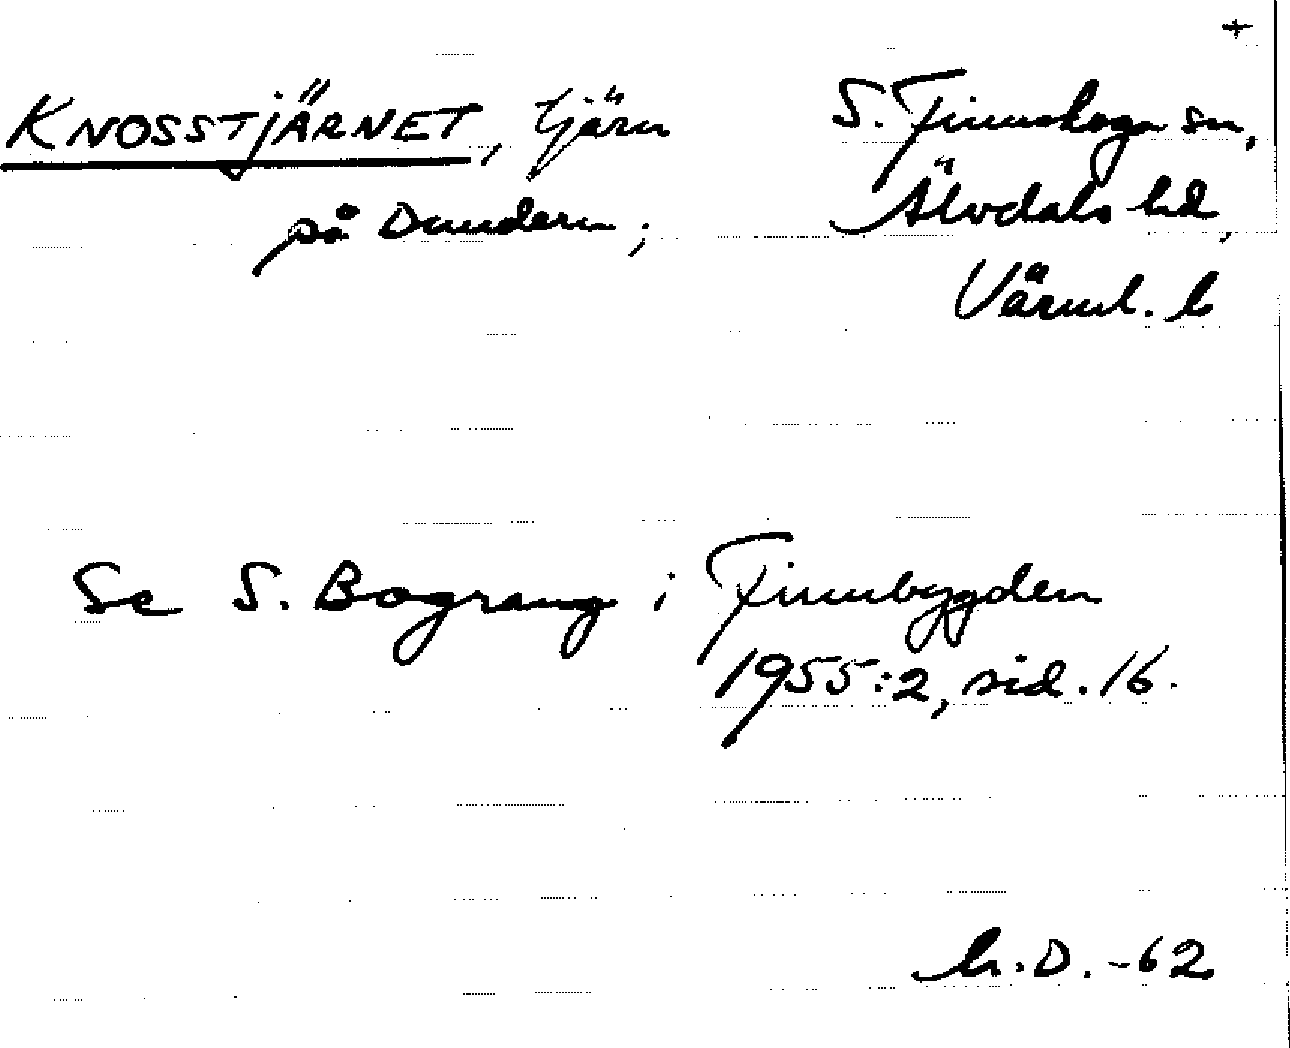 +
KNOSSTJÄRNET, tjärn
på Dundern;
S. Finnskoga sn,
Älvdals hd,
Värml. l
Se S. Bograng i Finnbygden
1955:2, sid. 16.
h.D. -62